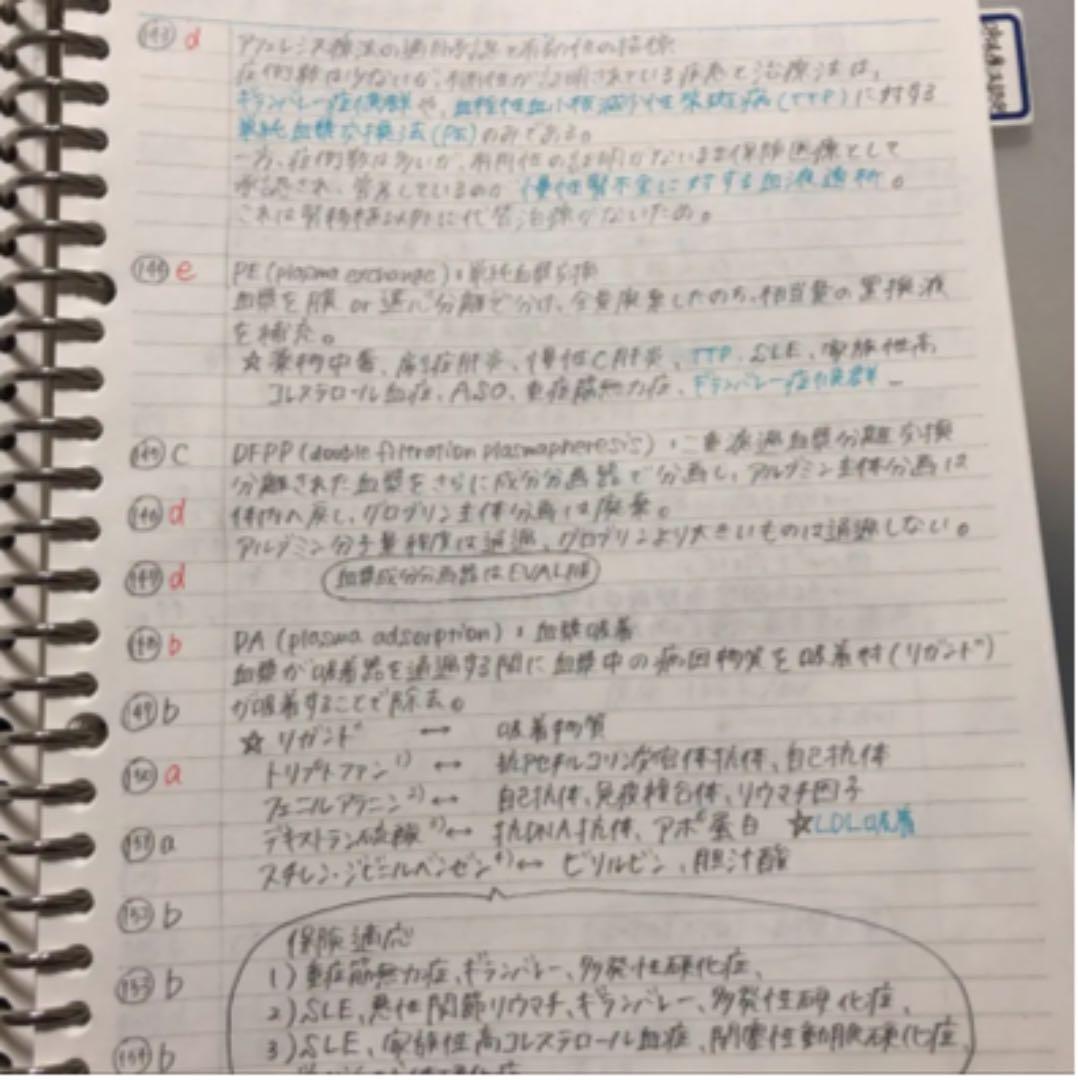 143 d アフェレシス療法の適用承認と有効性の指標
症例数は少ないが、有用性が証明されている疾患と治療法は、
ギランバレー症候群や、血栓性血小板減少性紫斑病(TTP)に対する
単純血漿交換法(PE)のみである。
一方、症例数は多いが、有用性の証明がないまま保険医療として
承認され、普及しているのが慢性腎不全に対する血液透析。
これは腎移植以外に代替治療がないため。
144 e PE (plasma exchange):単純血漿交換
血漿を膜 or 遠心分離で分け、全量廃棄したのち、相当量の置換液
を補充。
☆薬物中毒、劇症肝炎、慢性C肝炎、TTP、SLE、家族性高
コレステロール血症、ASO、重症筋無力症、ギランバレー症候群
145 c DFPP (double filtration plasmapheresis):二重濾過血漿分離交換
分離された血漿をさらに成分分画器で分画し、アルブミン主体分画は
146 d 体内へ戻し、グロブリン主体分画は廃棄。
アルブミン分子量程度は通過、グロブリンより大きいものは通過しない。
147 d 血漿成分分画器はEVAL膜
148 b PA (plasma adsorption):血漿吸着
血漿が吸着器を通過する間に血漿中の病因物質を吸着材(リガンド)
149 b が吸着することで除去。
☆ リガンド ↔ 吸着物質
150 a トリプトファン1) ↔ 抗アセチルコリン受容体抗体、自己抗体
フェニルアラニン2) ↔ 自己抗体、免疫複合体、リウマチ因子
151 a デキストラン硫酸3) ↔ 抗DNA抗体、アポB蛋白 ☆LDL吸着
スチレン・ジビニルベンゼン4) ↔ ビリルビン、胆汁酸
152 b
保険適応
153 b 1) 重症筋無力症、ギランバレー、多発性硬化症、
2) SLE、悪性関節リウマチ、ギランバレー、多発性硬化症、
3) SLE、家族性高コレステロール血症、閉塞性動脈硬化症
154 b